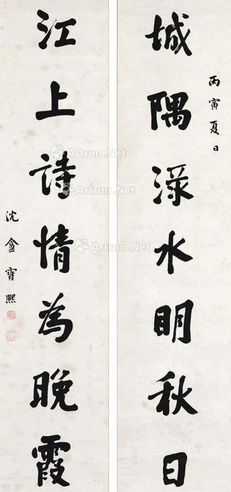 丙寅夏日
城隅渌水明秋日
江上詩情為晚霞
沈盦寶熙
Artron.Net
Artron.Net
Artron.Net
Artron.Net